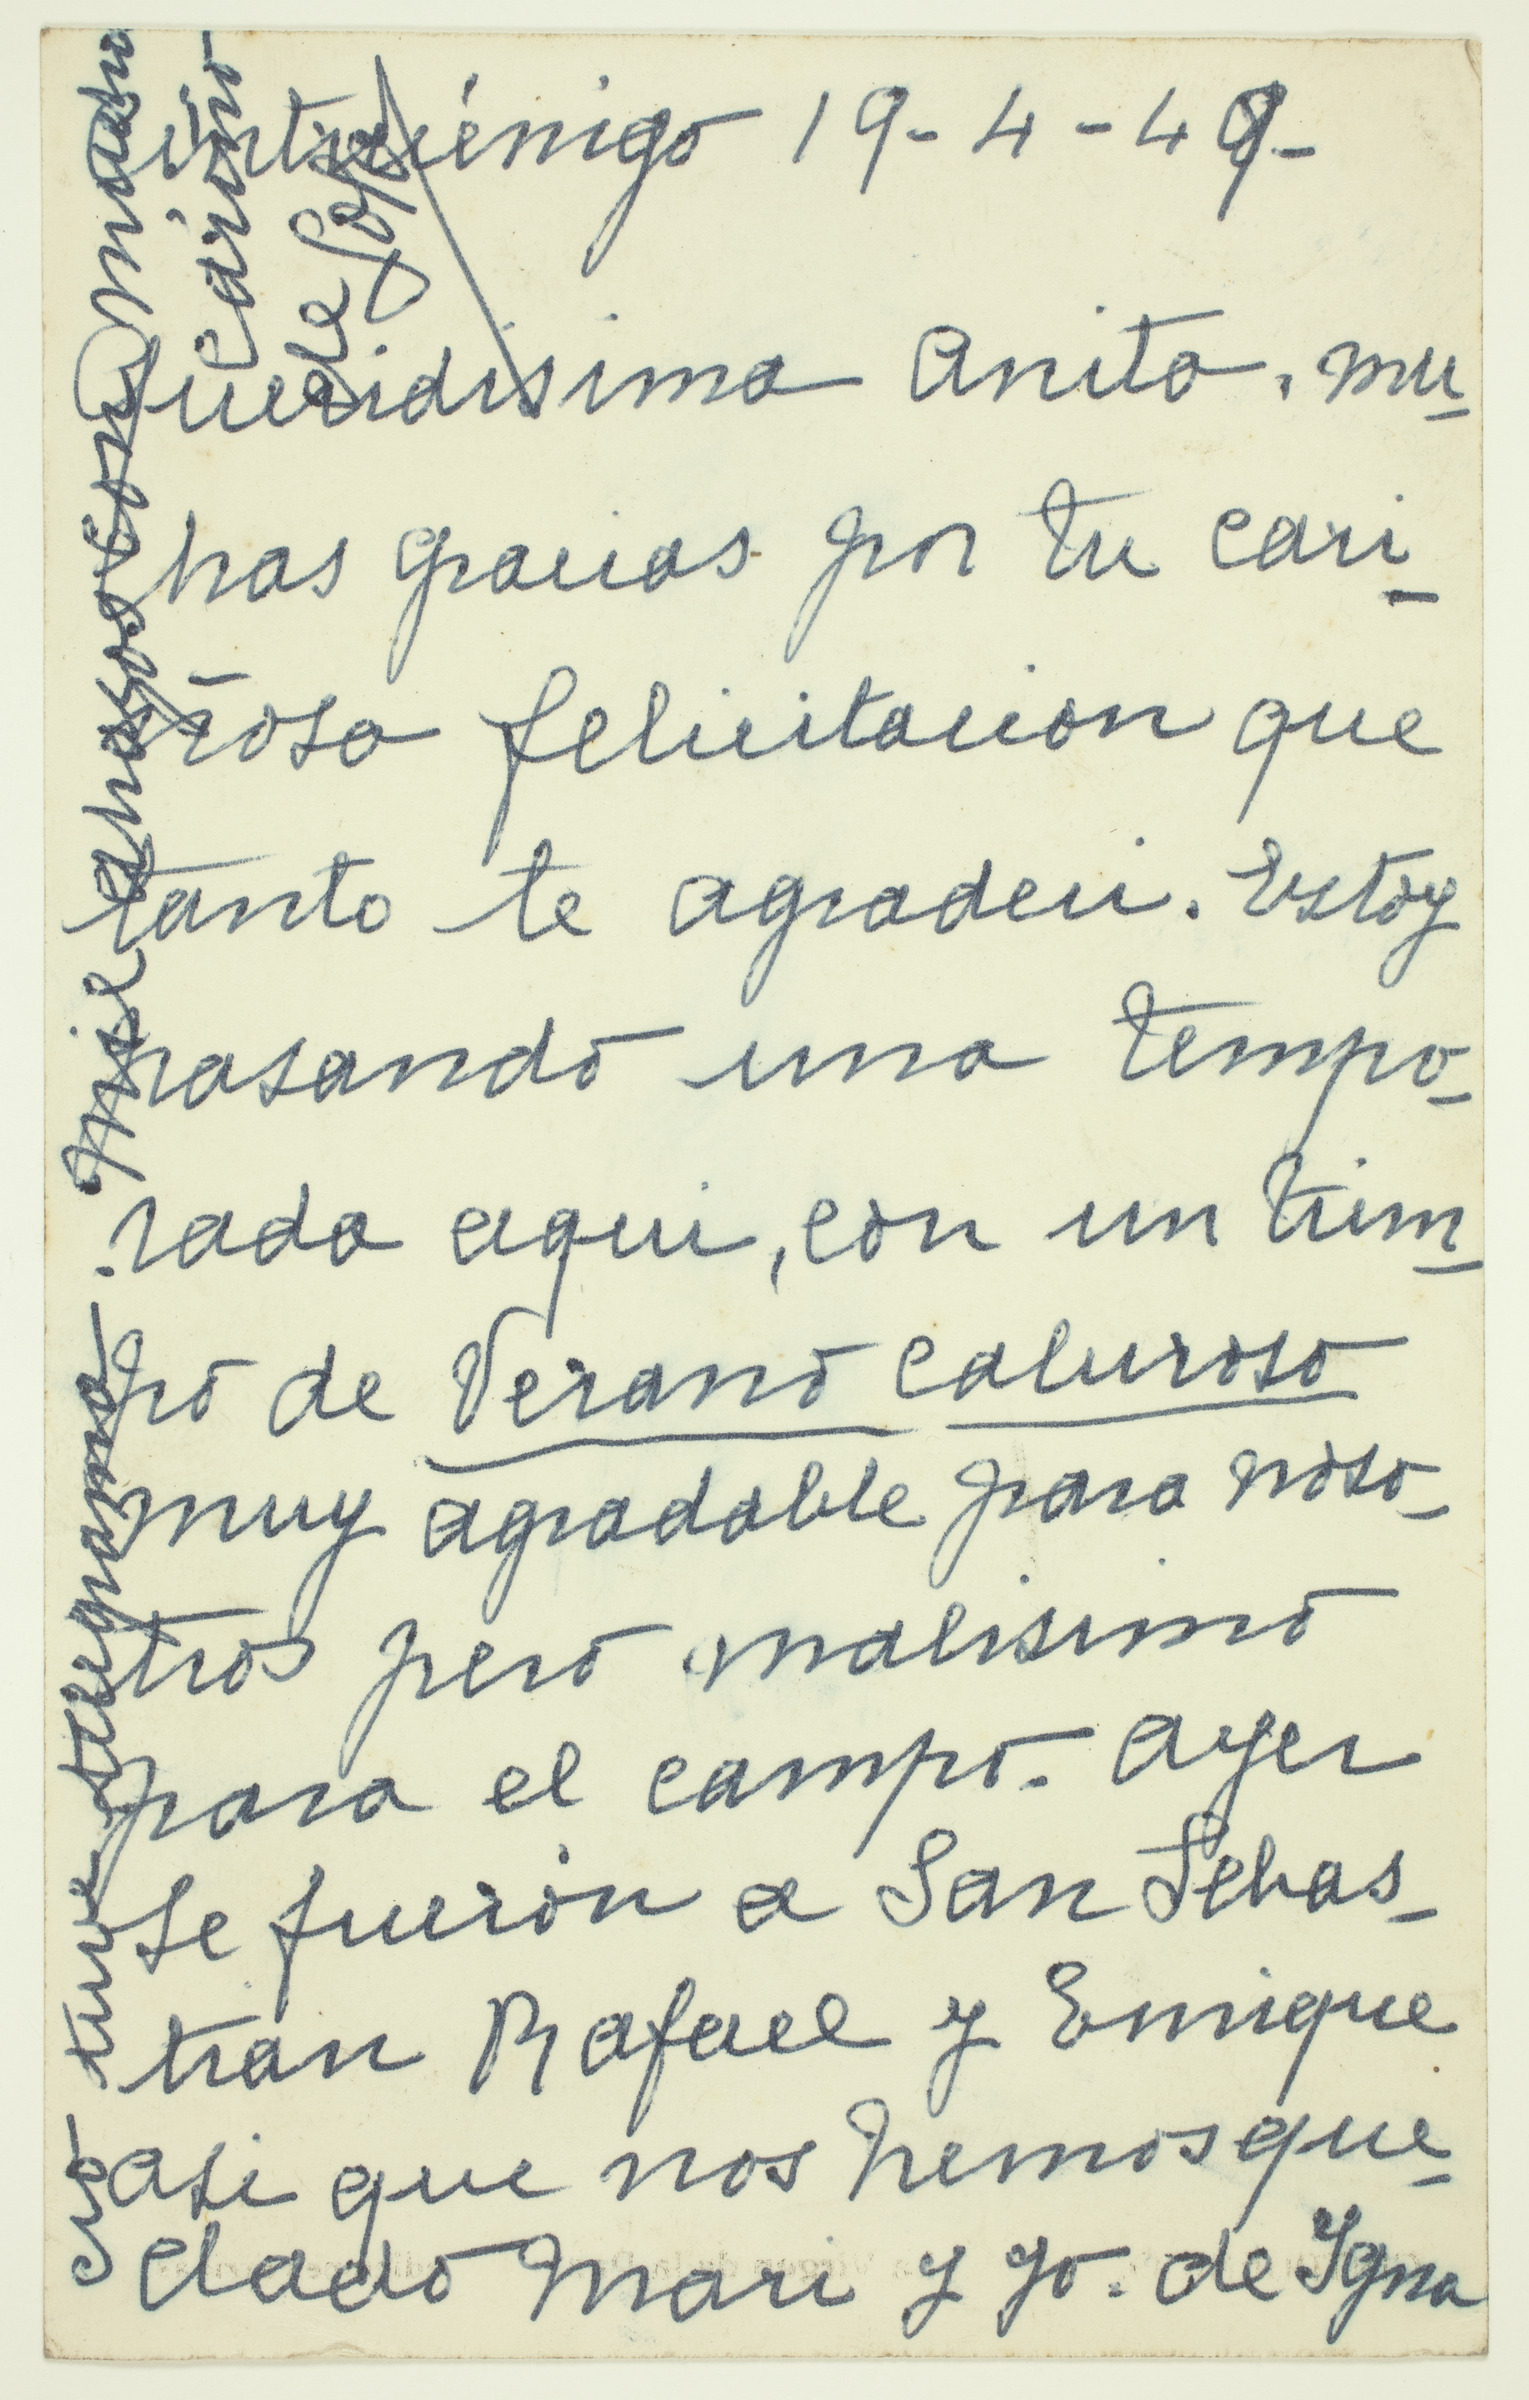 Cintruénigo 19-4-49-
Queridisima Anita. mu-
chas gracias por tu cari-
ñosa felicitacion que
tanto te agradeci. Estoy
pasando una tempo-
rada aqui, con un tiem-
po de Verano caluroso
muy agradable para noso-
tros pero malisimo
para el campo. Ayer
se fueron a San Sebas-
tian Rafael y Enrique
asi que nos hemos que-
dado Mari y yo. de Ygna
cio tuve telegrama. Mil abrazos con
mucho
cariño
de Sofia